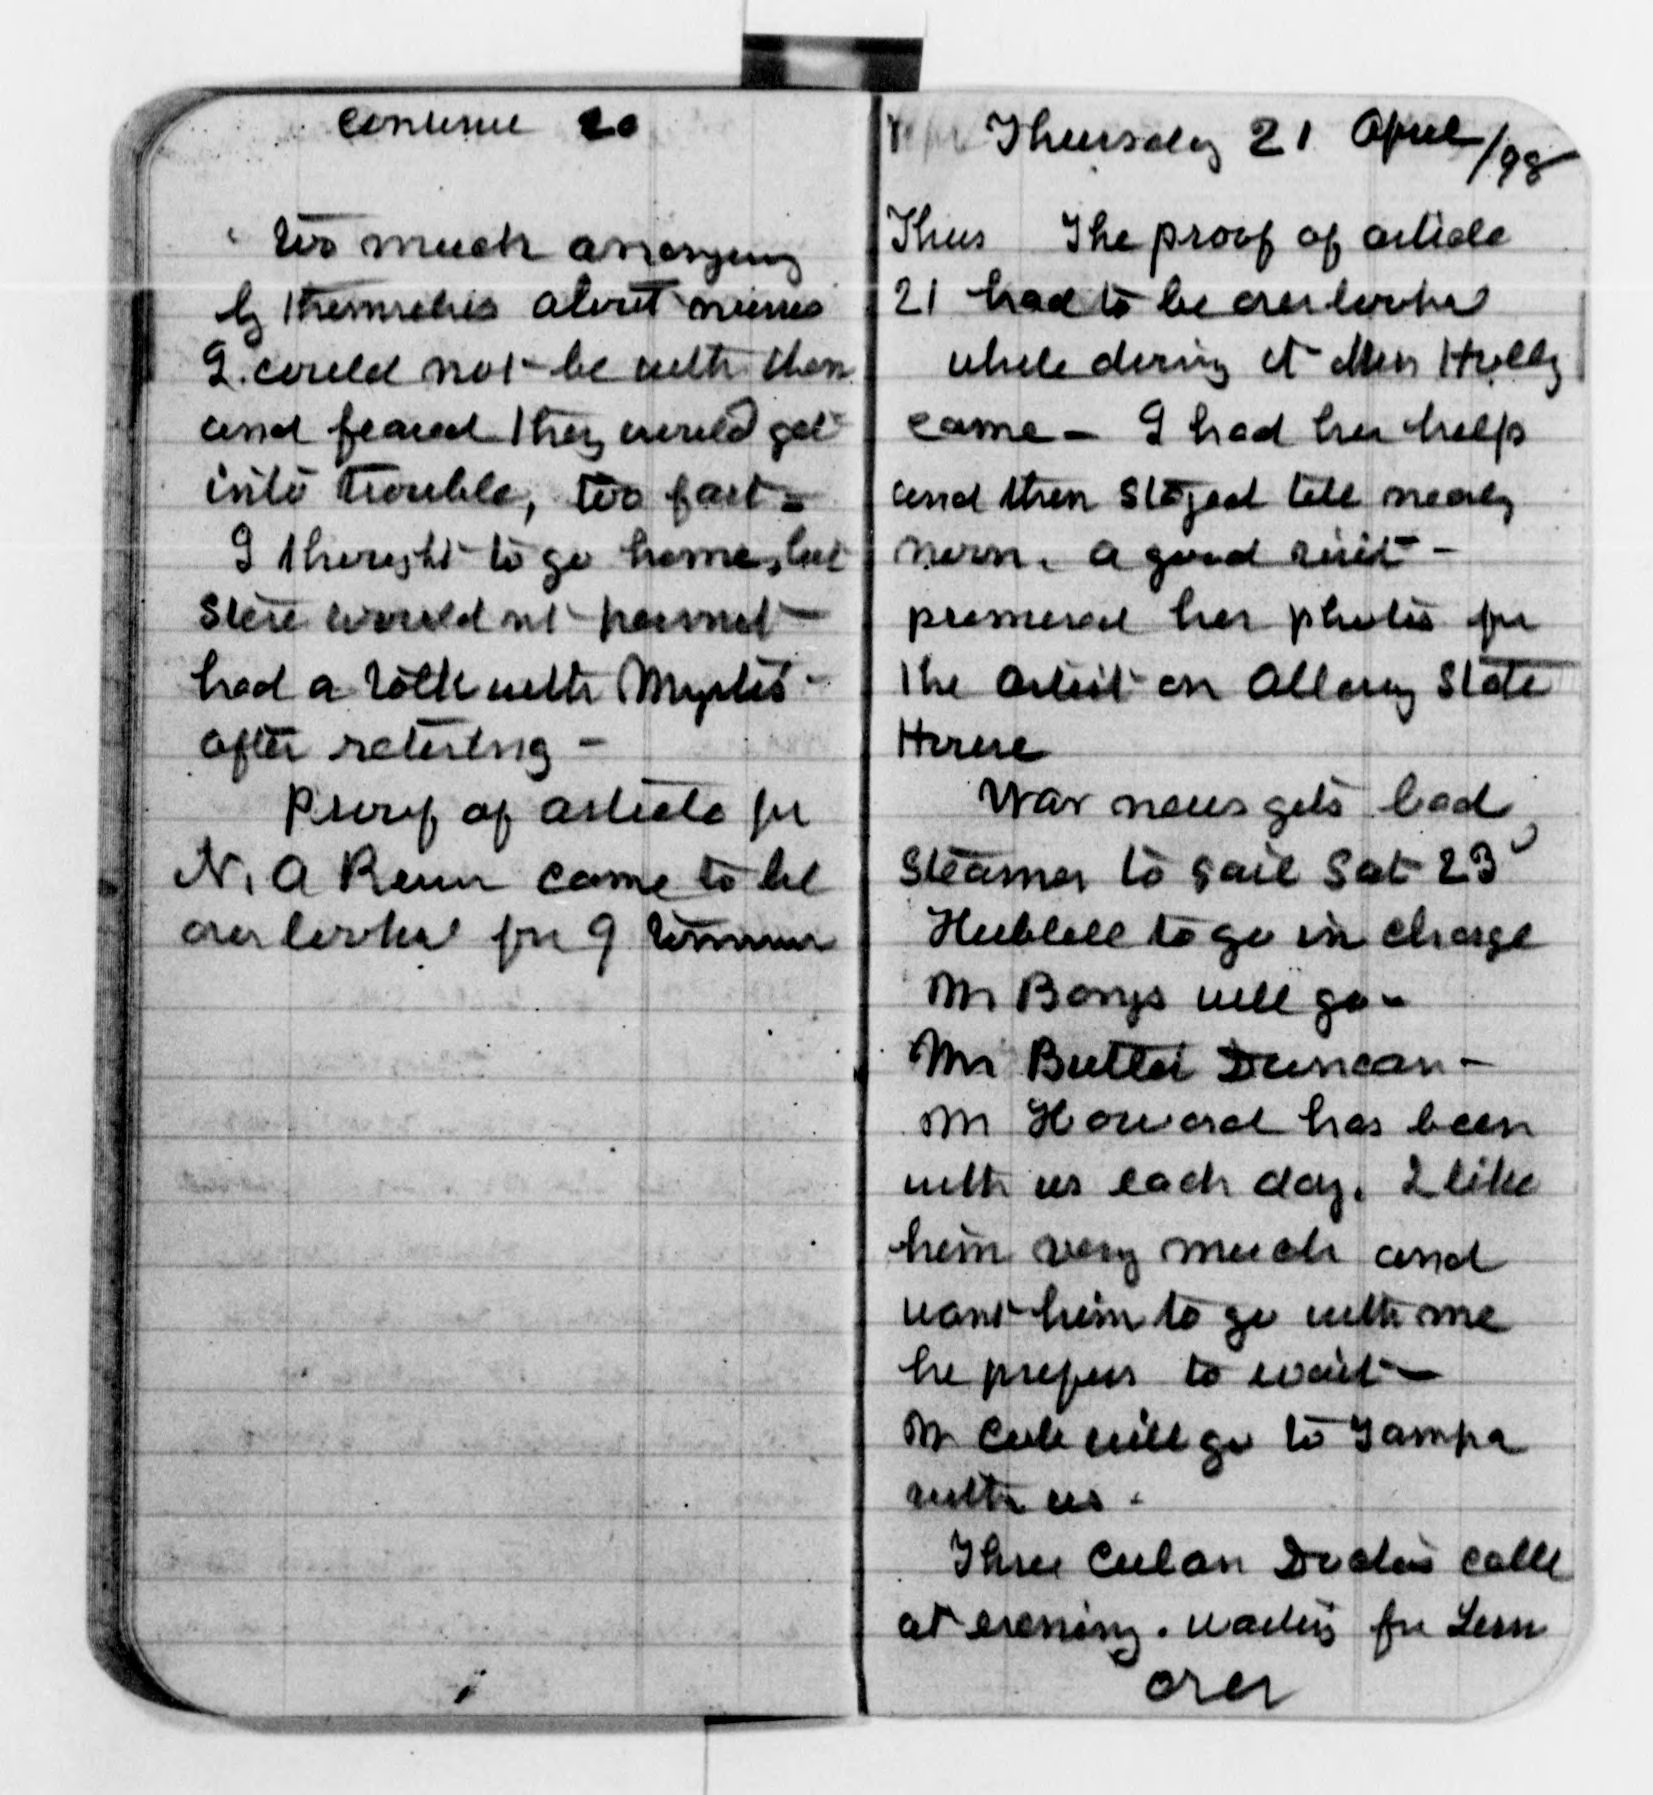 continue 20
too much arranging
by themselves about nurses
I could not be with them
and feared they would get
into trouble, too fast -
I thought to go home, but
Steve would not permit -
had a talk with Myrtis -
after retiring -
Proof of article for
N. A Revu came to be
overlooked for 9 tomorrow
Thursday 21 April /98
Thus The proof of article
21 had to be overlooked
while doing it Miss Holly
came - I had her help
and then stayed till nearly
noon. a good visit -
promised her photos for
the artist on Albany State
House
War news gets bad
Steamer to sail Sat 23
Hubbell to go in charge
Mr Bangs will go -
Mr Butler Duncan -
Mr Howard has been
with us each day. I like
him very much and
want him to go with me
he prefers to wait -
Mr Cole will go to Tampa
with us -
Three Cuban Doctors call
at evening. waiting for
over